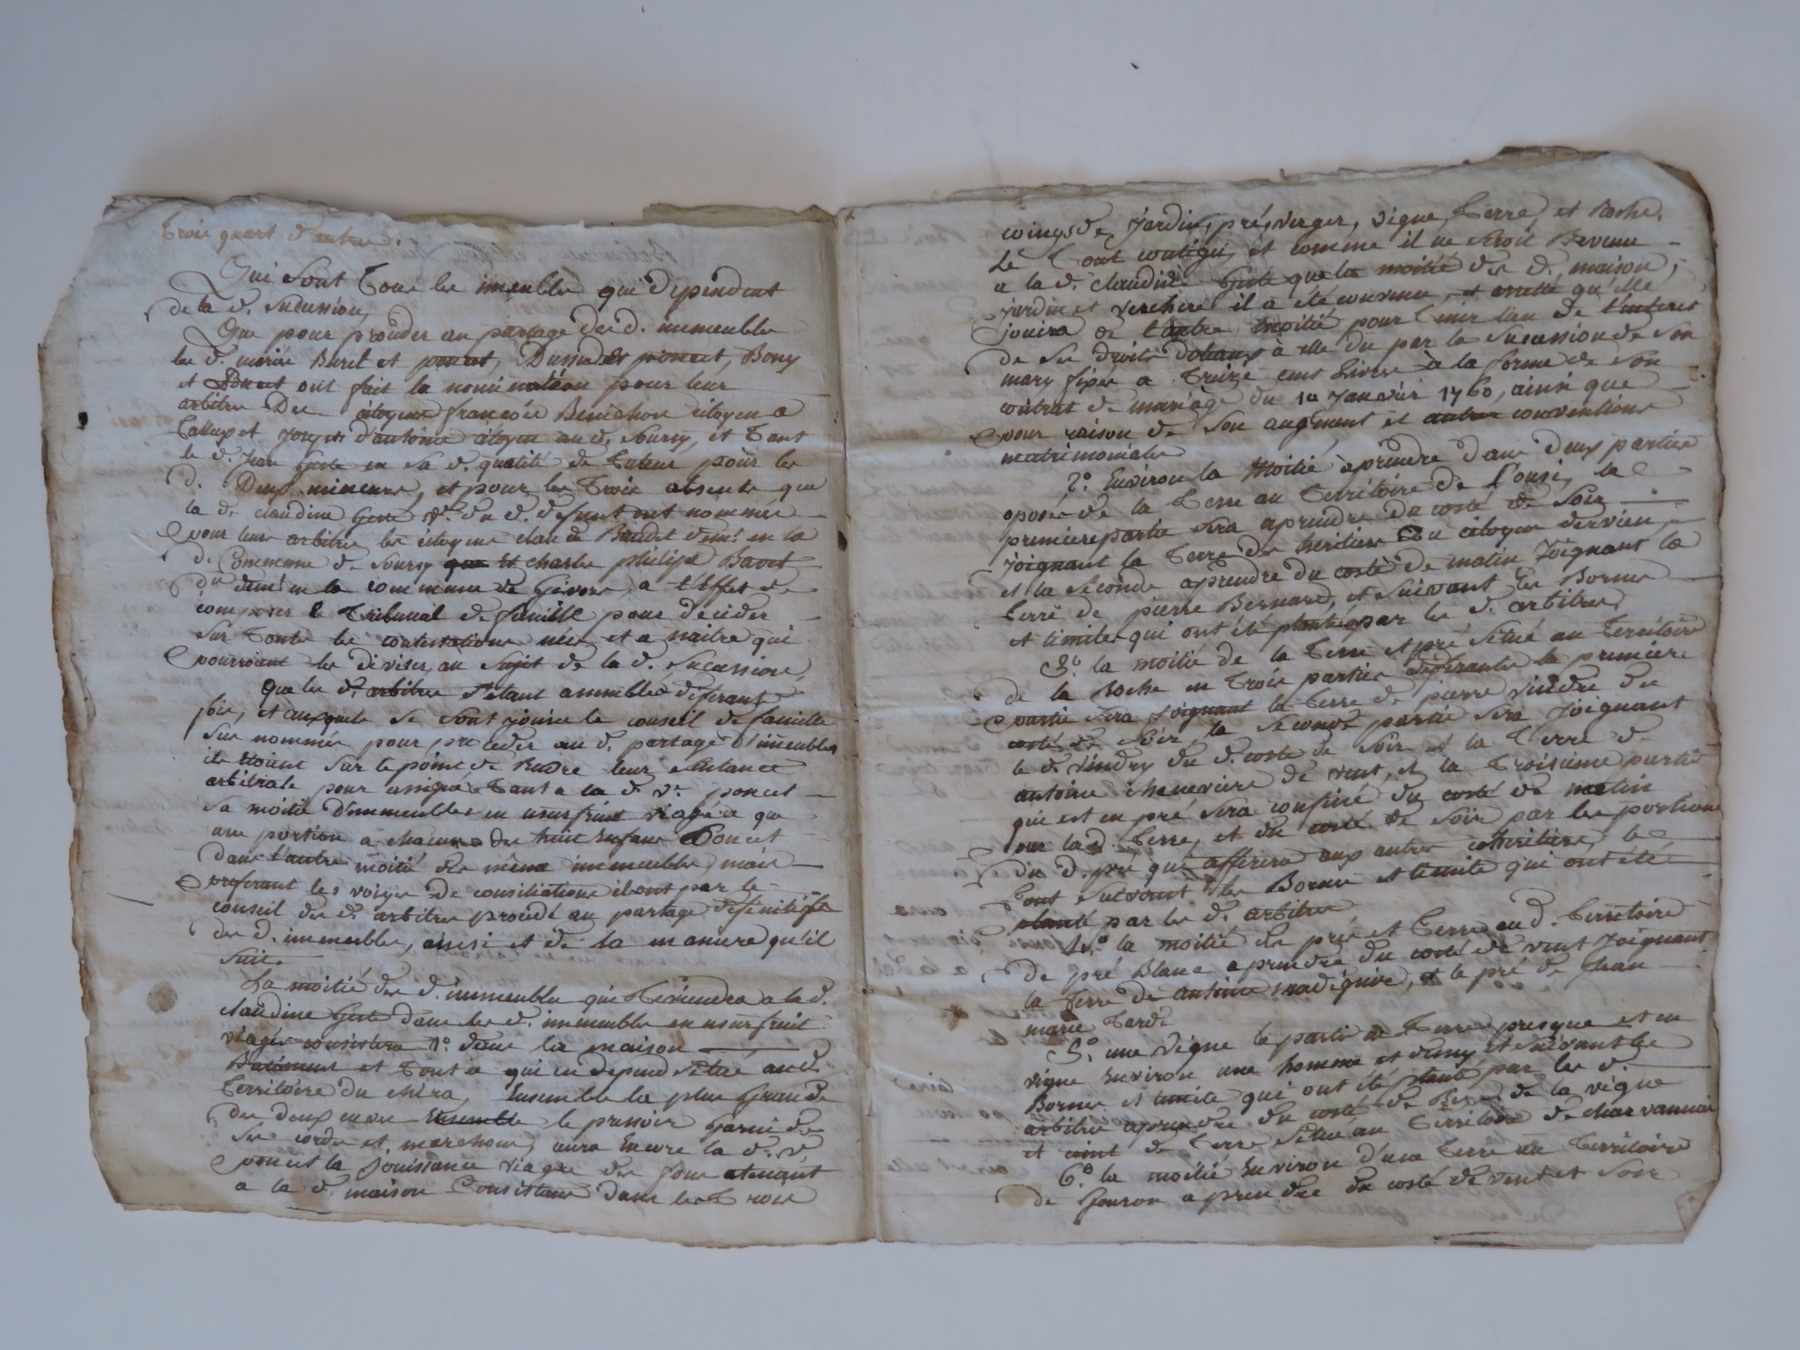 trois quart d'autre.
Qui sont Tous les imeubles qui dépendent
de la d. succession,
Que pour proceder au partage des d. immeubles
les d. marie Buret et poncet, poncet, Bony
et Poncet ont fait la nomination pour leur
arbitre Des citoyens francois Benechon citoyen a
et Joseph d'antoine citoyen au d. Soursy, et Tant
le d. Jean Giste en sa d. qualité de Tuteur pour les
d. Deux mineurs, et pour les Trois absents que
la d. claudine Giste v.e du d. defunt ont nommés
pour leurs arbitre les citoyens claude Baudet dem.t en la
d. Commune de Soursy et charles philipe
dem.t en la commune de Givors, a l'effet de
composer le Tribunal de famille pour decider
sur Toute les contestations nées et a naitre qui
pourroient les diviser, au sujet de la d. succession,
Que les d. arbitres s'etant assemblés differantes
fois, et auxquels se sont joints le conseil de famille
sus nommés pour proceder au d. partage d'immeubles
ils etoient sur le point de Rendre leur sentance
arbitrale pour assigné Tant a la d. v.e poncet
sa moitié d'immeubles en usufruit viagé que
une portion a chacuns des huit Enfans Poncet
dans l'autre moitié des même immeubles, mais
preferant les voiyes de consiliations ils ont par le
conseil des d. arbitres procédé au partage définitife
des d. immeubles, ainsi et de la maniere qu'il
suit.
La moitié des d. immeubles qui Reviendra a la d.
claudine Giste dans les d. immeubles en usufruit
viagér consistera 1.o dans la maison
Batiment et Tout ce qui en depend situé au d.
Territoire du Ensemble la plus Grande
des deux cuves Ensemble le pressoir Garni de
ses cordes et marchons, aura Encore la d. v.e
poncet la Jouissance viagere des fons atenant
a la d. maison Consistant dans les Trois
coings de Jardin, pré, verger, vigne, Terre, et Roche,
Le Tout contigu, et comme il ne seroit Revenu
a la d. claudine Giste que la moitié des d. maison,
jardin et verchere il a été convenu, et arretté qu'elle
jouira de l'autre moitié pour Tenir lieu de l'interet
de ses droits à elle du par la Succession de son
mary fixés a Treize cens livres à la forme de son
contrat de mariage du 10 Janvier 1760, ainsi que
pour raison de son augment et autres conventions
matrimoniale
2.o Environ la Moitié à prendre dans deux parties
oposés de la Terre au Territoire de la
premiere partie sera a prendre du costé de Soir
Joignant la Terre des heritiers du citoyen dervieu,
et la Seconde a prendre du costé de matin Joignant la
Terre de pierre Bernard, et suivant les Bornes
et limites qui ont été plantés par les d. arbitres,
3.o la moitié de la Terre et pré situé au Territoire
de la Roche en Trois parties differantes la premiere
partie sera Joignant la Terre de pierre vindry du
costé de Soir, la seconde partie sera Joignant
le d. vindry du d. costé de Soir et la Terre de
antoine chenevière de vent, et la Troisieme partie
qui est en pré sera confiné du costé de matin
par la d. Terre, et du costé de soir par les portions
du d. pré qui afferira aux autres coheritiers, le
Tout suivant les Bornes et limite qui ont été
planté par les d. arbitres
4.o la moitié des pré et Terre au d. Territoire
de pré Blanc a prendre du costé de vent Joignant
la Terre de antoine et le pré de Jean
marie Tardi
5.o une vigne le partie de Terre presque et en
vigne Environ une homme et demy Et suivant les
Bornes et limite qui ont été planté par les d.
arbitre a prendre du costé de Bise de la vigne
et de Terre située au Territoire de charvannai
6.o la moitié Environ d'une Terre au Territoire
de a prendre du costé de vent et soir